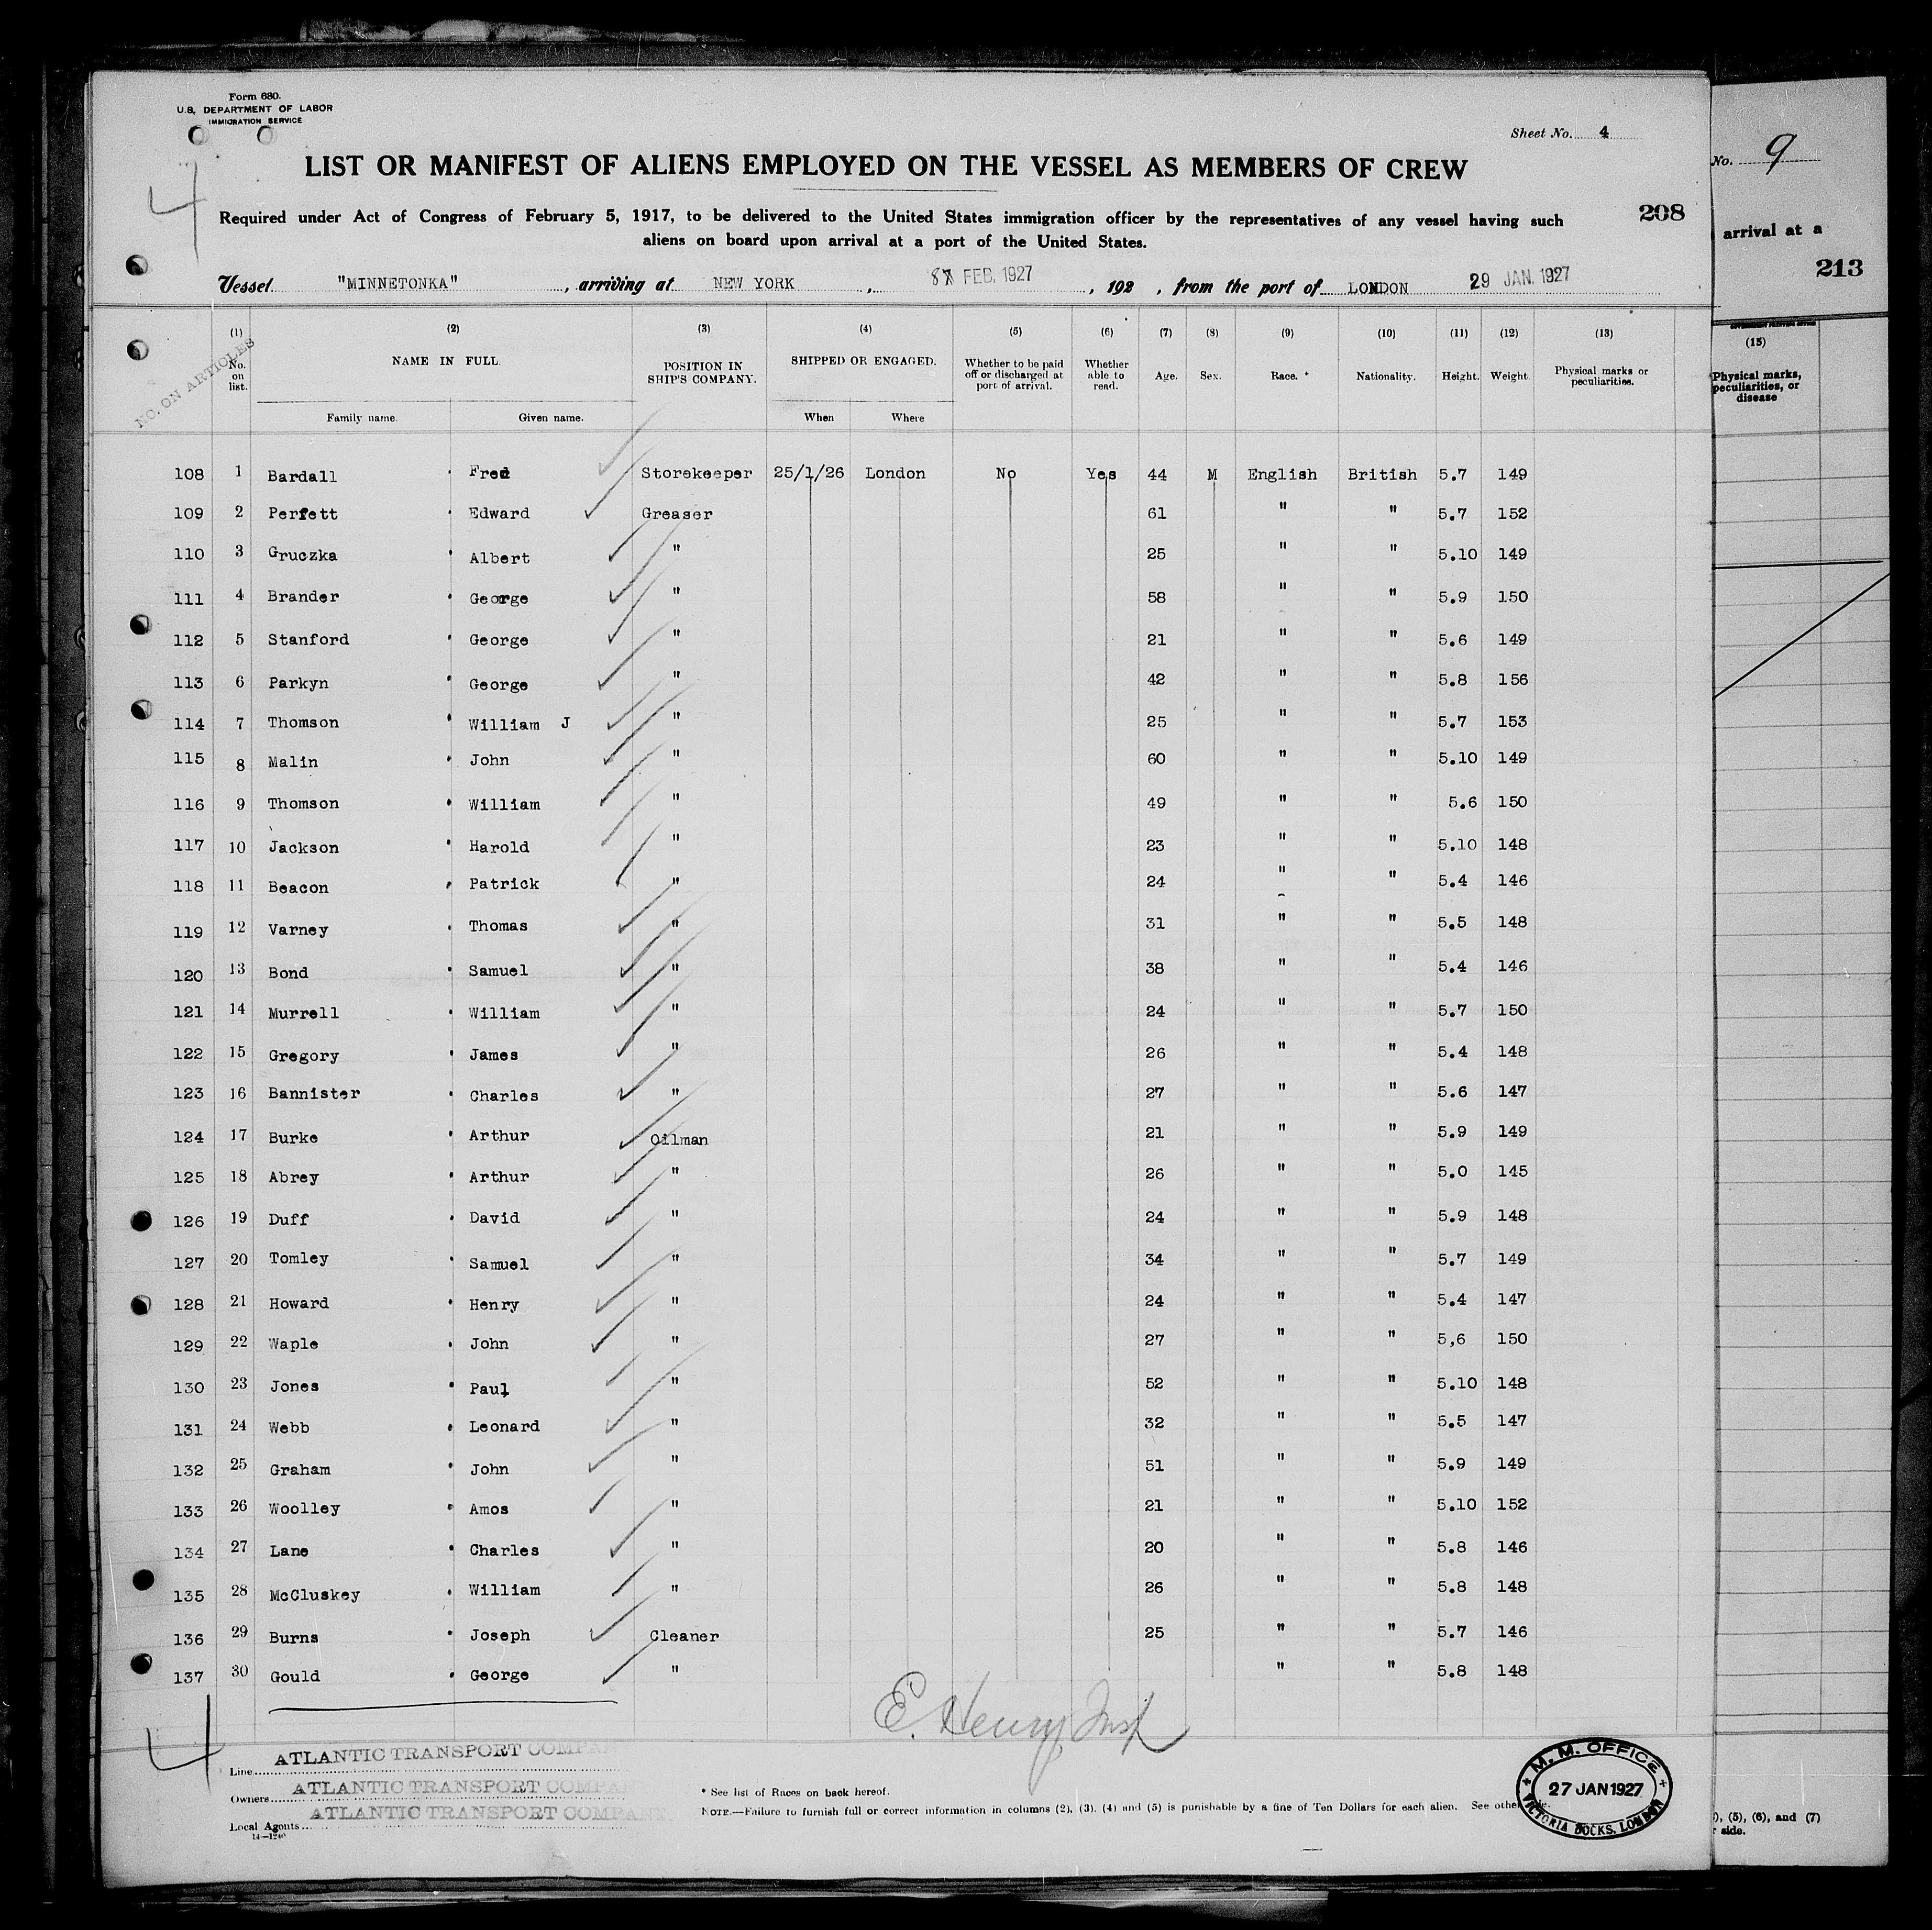 Form 680.
U.S. DEPARTMENT OF LABOR
IMMIGRATION SERVICE
Sheet No. 4
LIST OR MANIFEST OF ALIENS EMPLOYED ON THE VESSEL AS MEMBERS OF CREW
4
Required under Act of Congress of February 5, 1917, to be delivered to the United States immigration officer by the representatives of any vessel having such
aliens on board upon arrival at a port of the United States.
208
Vessel "MINNETONKA", arriving at NEW YORK, 8 FEB. 1927, 192 , from the port of LONDON 29 JAN. 1927
NO. ON ARTICLES
(1) (2) (3) (4) (5) (6) (7) (8) (9) (10) (11) (12) (13)
No. on list. NAME IN FULL. POSITION IN SHIP'S COMPANY. SHIPPED OR ENGAGED. Whether to be paid off or discharged at port of arrival. Whether able to read. Age. Sex. Race.* Nationality. Height. Weight Physical marks or peculiarities.
Family name. Given name. When Where
108 1 Bardall Fred Storekeeper 25/1/26 London No Yes 44 M English British 5.7 149
109 2 Perfett Edward Greaser 61 " " 5.7 152
110 3 Gruczka Albert " 25 " " 5.10 149
111 4 Brander George " 58 " " 5.9 150
112 5 Stanford George " 21 " " 5.6 149
113 6 Parkyn George " 42 " " 5.8 156
114 7 Thomson William J " 25 " " 5.7 153
115 8 Malin John " 60 " " 5.10 149
116 9 Thomson William " 49 " " 5.6 150
117 10 Jackson Harold " 23 " " 5.10 148
118 11 Beacon Patrick " 24 " " 5.4 146
119 12 Varney Thomas " 31 " " 5.5 148
120 13 Bond Samuel " 38 " " 5.4 146
121 14 Murrell William " 24 " " 5.7 150
122 15 Gregory James " 26 " " 5.4 148
123 16 Bannister Charles " 27 " " 5.6 147
124 17 Burke Arthur Oilman 21 " " 5.9 149
125 18 Abrey Arthur " 26 " " 5.0 145
126 19 Duff David " 24 " " 5.9 148
127 20 Tomley Samuel " 34 " " 5.7 149
128 21 Howard Henry " 24 " " 5.4 147
129 22 Waple John " 27 " " 5,6 150
130 23 Jones Paul " 52 " " 5.10 148
131 24 Webb Leonard " 32 " " 5.5 147
132 25 Graham John " 51 " " 5.9 149
133 26 Woolley Amos " 21 " " 5.10 152
134 27 Lane Charles " 20 " " 5.8 146
135 28 McCluskey William " 26 " " 5.8 148
136 29 Burns Joseph Cleaner 25 " " 5.7 146
137 30 Gould George " " " 5.8 148
4
E. Henry, Insp
Line ATLANTIC TRANSPORT COMPANY
Owners ATLANTIC TRANSPORT COMPANY
Local Agents ATLANTIC TRANSPORT COMPANY
14—1240
* See list of Races on back hereof.
NOTE.—Failure to furnish full or correct information in columns (2), (3), (4) and (5) is punishable by a fine of Ten Dollars for each alien. See other
M. M. OFFICE
27 JAN 1927
VICTORIA DOCKS, LONDON
No. 9
arrival at a
213
(15)
Physical marks, peculiarities, or disease
(5), (6), and (7)
side.